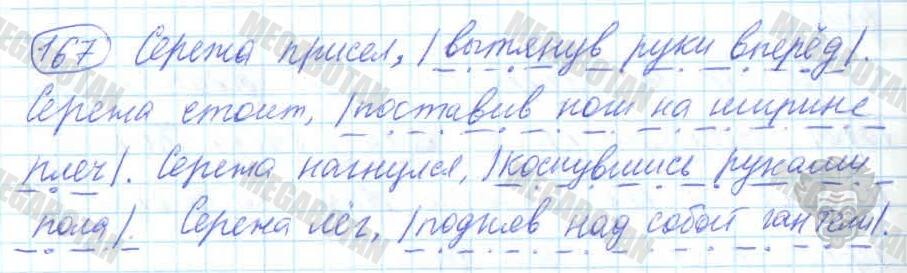 167 Сережа присел, |вытянув руки вперёд|.
Сережа стоит, |поставив ноги на ширине
плеч|. Сережа нагнулся, |коснувшись руками
пола|. Сережа лёг, |подняв над собой гантели|.
MEGABOTAN MEGABOTAN MEGABOTAN MEGABOTAN